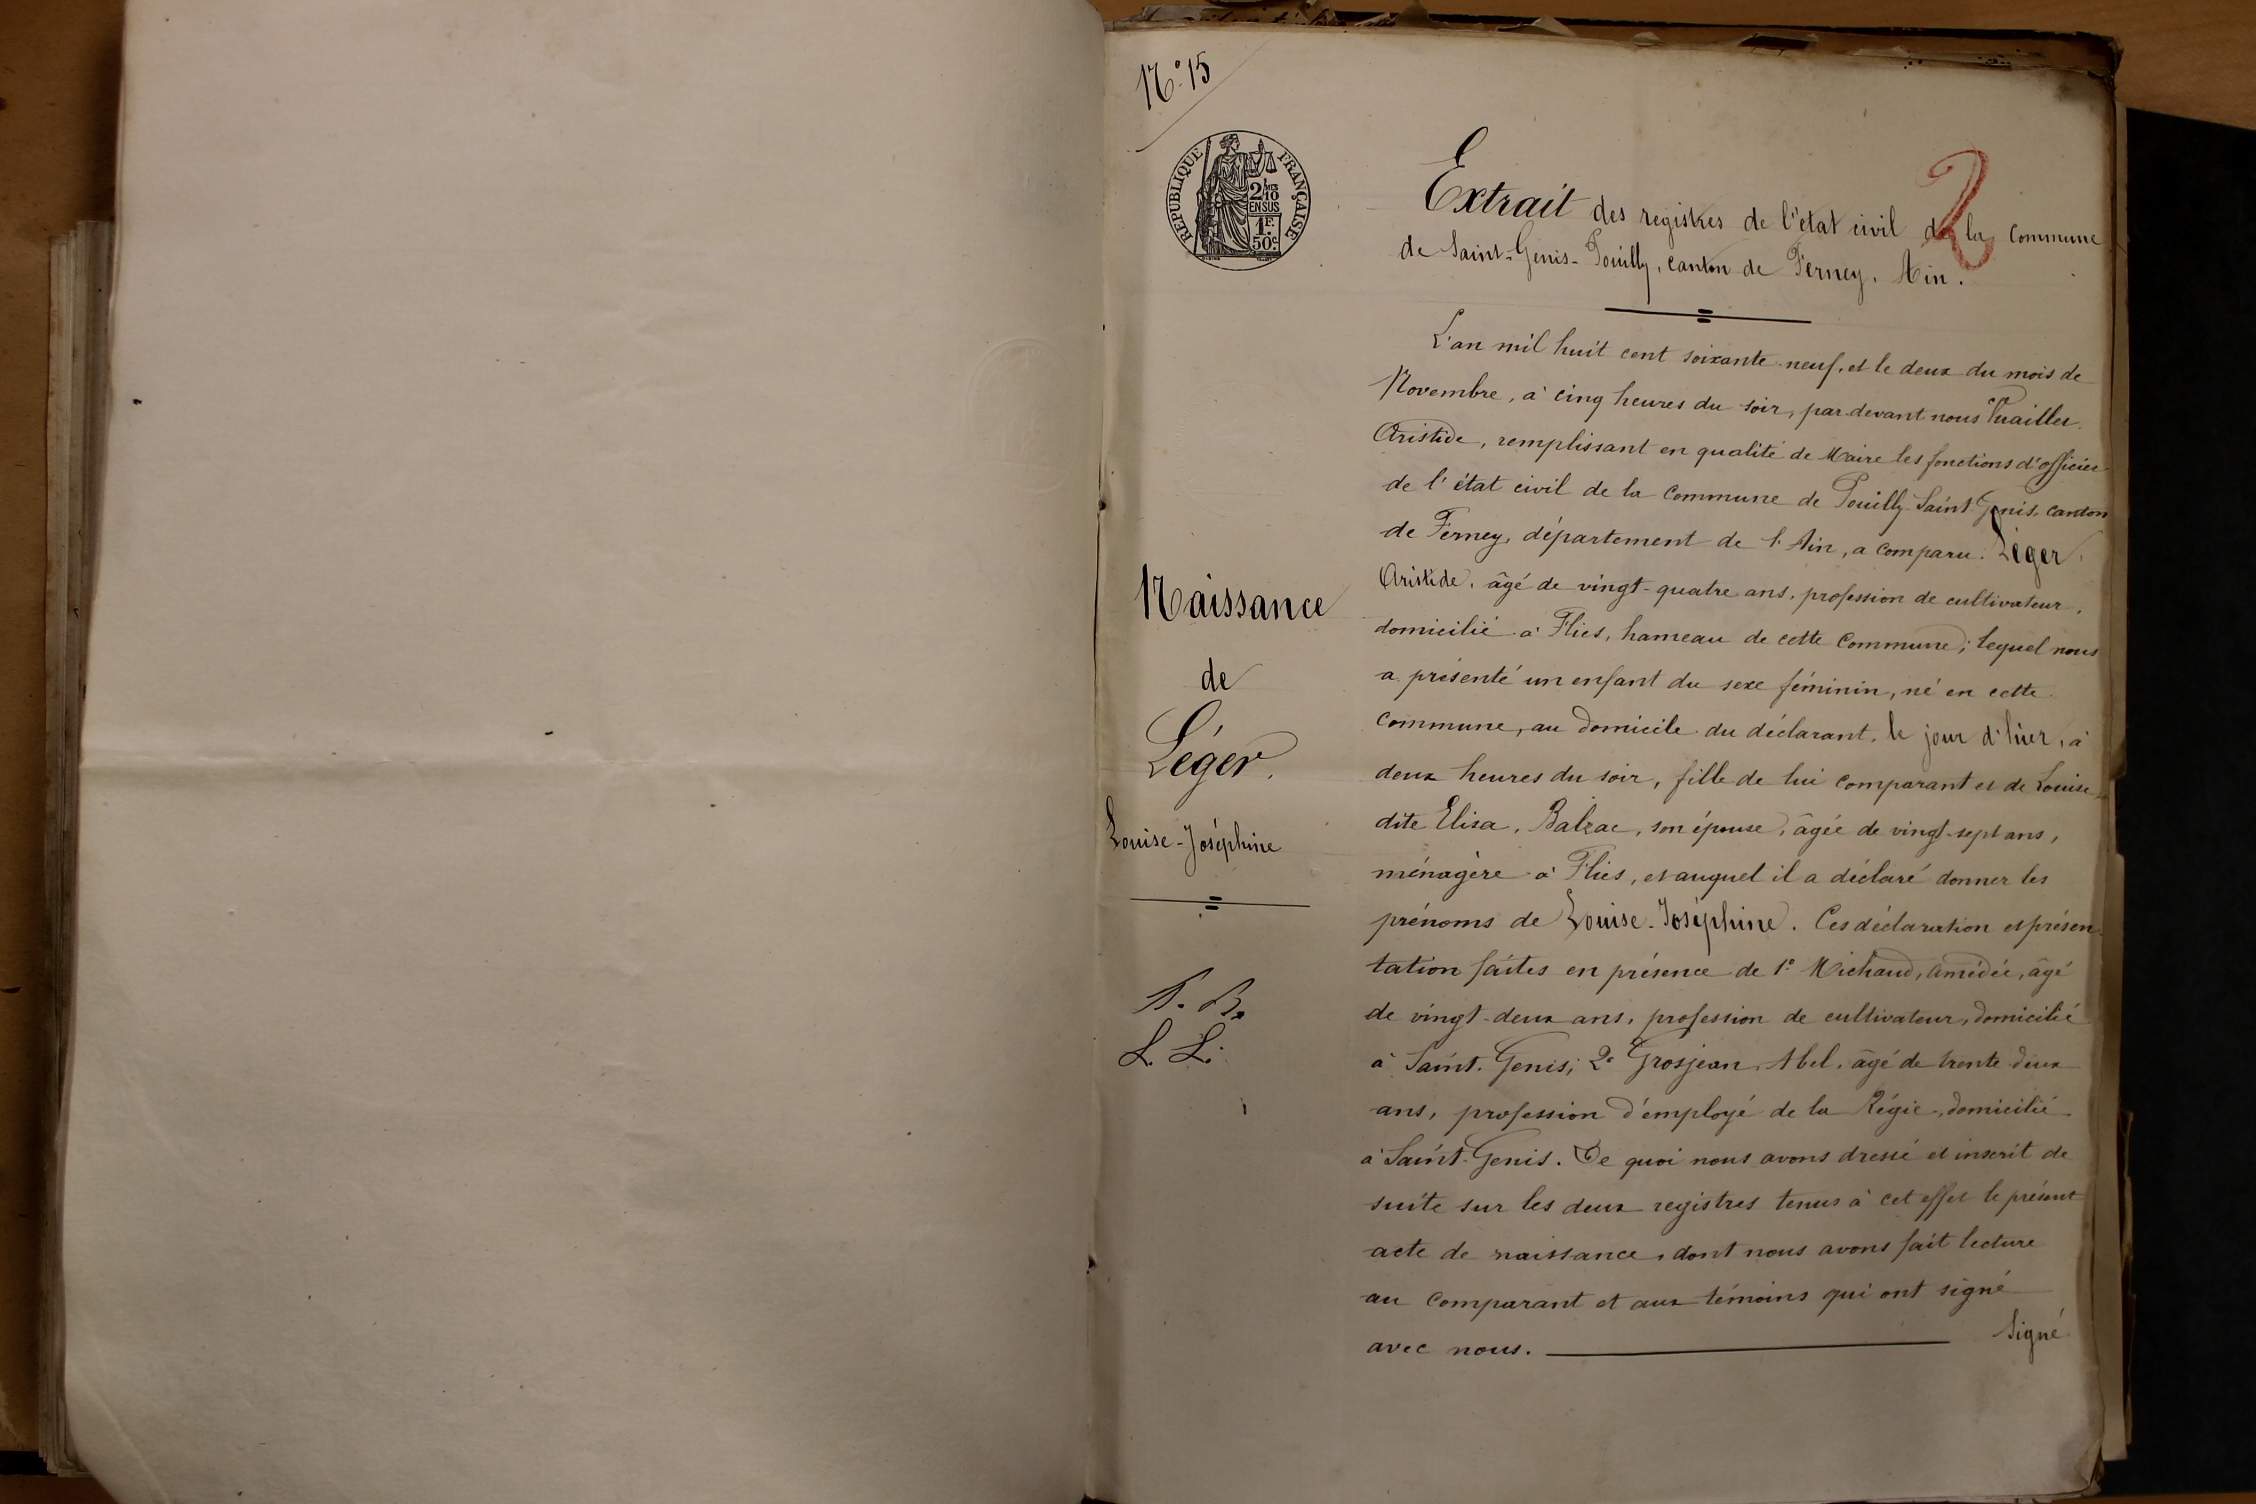 N.° 15
RÉPUBLIQUE FRANÇAISE
2/10
EN SUS
1F.
50c.
2
Extrait des registres de l'état civil de la commune
de Saint-Genis-Pouilly, canton de Ferney, Ain.
L'an mil huit cent soixante-neuf, et le deux du mois de
Novembre, à cinq heures du soir, par-devant nous
Aristide, remplissant en qualité de Maire les fonctions d'officier
de l'état civil de la commune de Pouilly-Saint Genis, canton
de Ferney, département de l'Ain, a comparu. Léger
Aristide, âgé de vingt-quatre ans, profession de cultivateur,
domicilié à Flies, hameau de cette commune; lequel nous
a présenté un enfant du sexe féminin, né en cette
commune, au domicile du déclarant, le jour d'hier, à
deux heures du soir, fille de lui comparant et de Louise
dite Elisa, Balzac, son épouse, âgée de vingt-sept ans,
ménagère à Flies, et auquel il a déclaré donner les
prénoms de Louise-Joséphine. Ces déclaration et présen
tation faites en présence de 1° Michaud, Amédée, âgé
de vingt-deux ans, profession de cultivateur, domicilié
à Saint-Genis; 2° Grosjean, Abel, âgé de trente deux
ans, profession d'employé de la Régie, domicilié
à Saint-Genis. De quoi nous avons dressé et inscrit de
suite sur les deux registres tenus à cet effet le présent
acte de naissance, dont nous avons fait lecture
au comparant et aux témoins qui ont signé
avec nous. Signé
Naissance
de
Léger.
Louise-Joséphine
L. L.